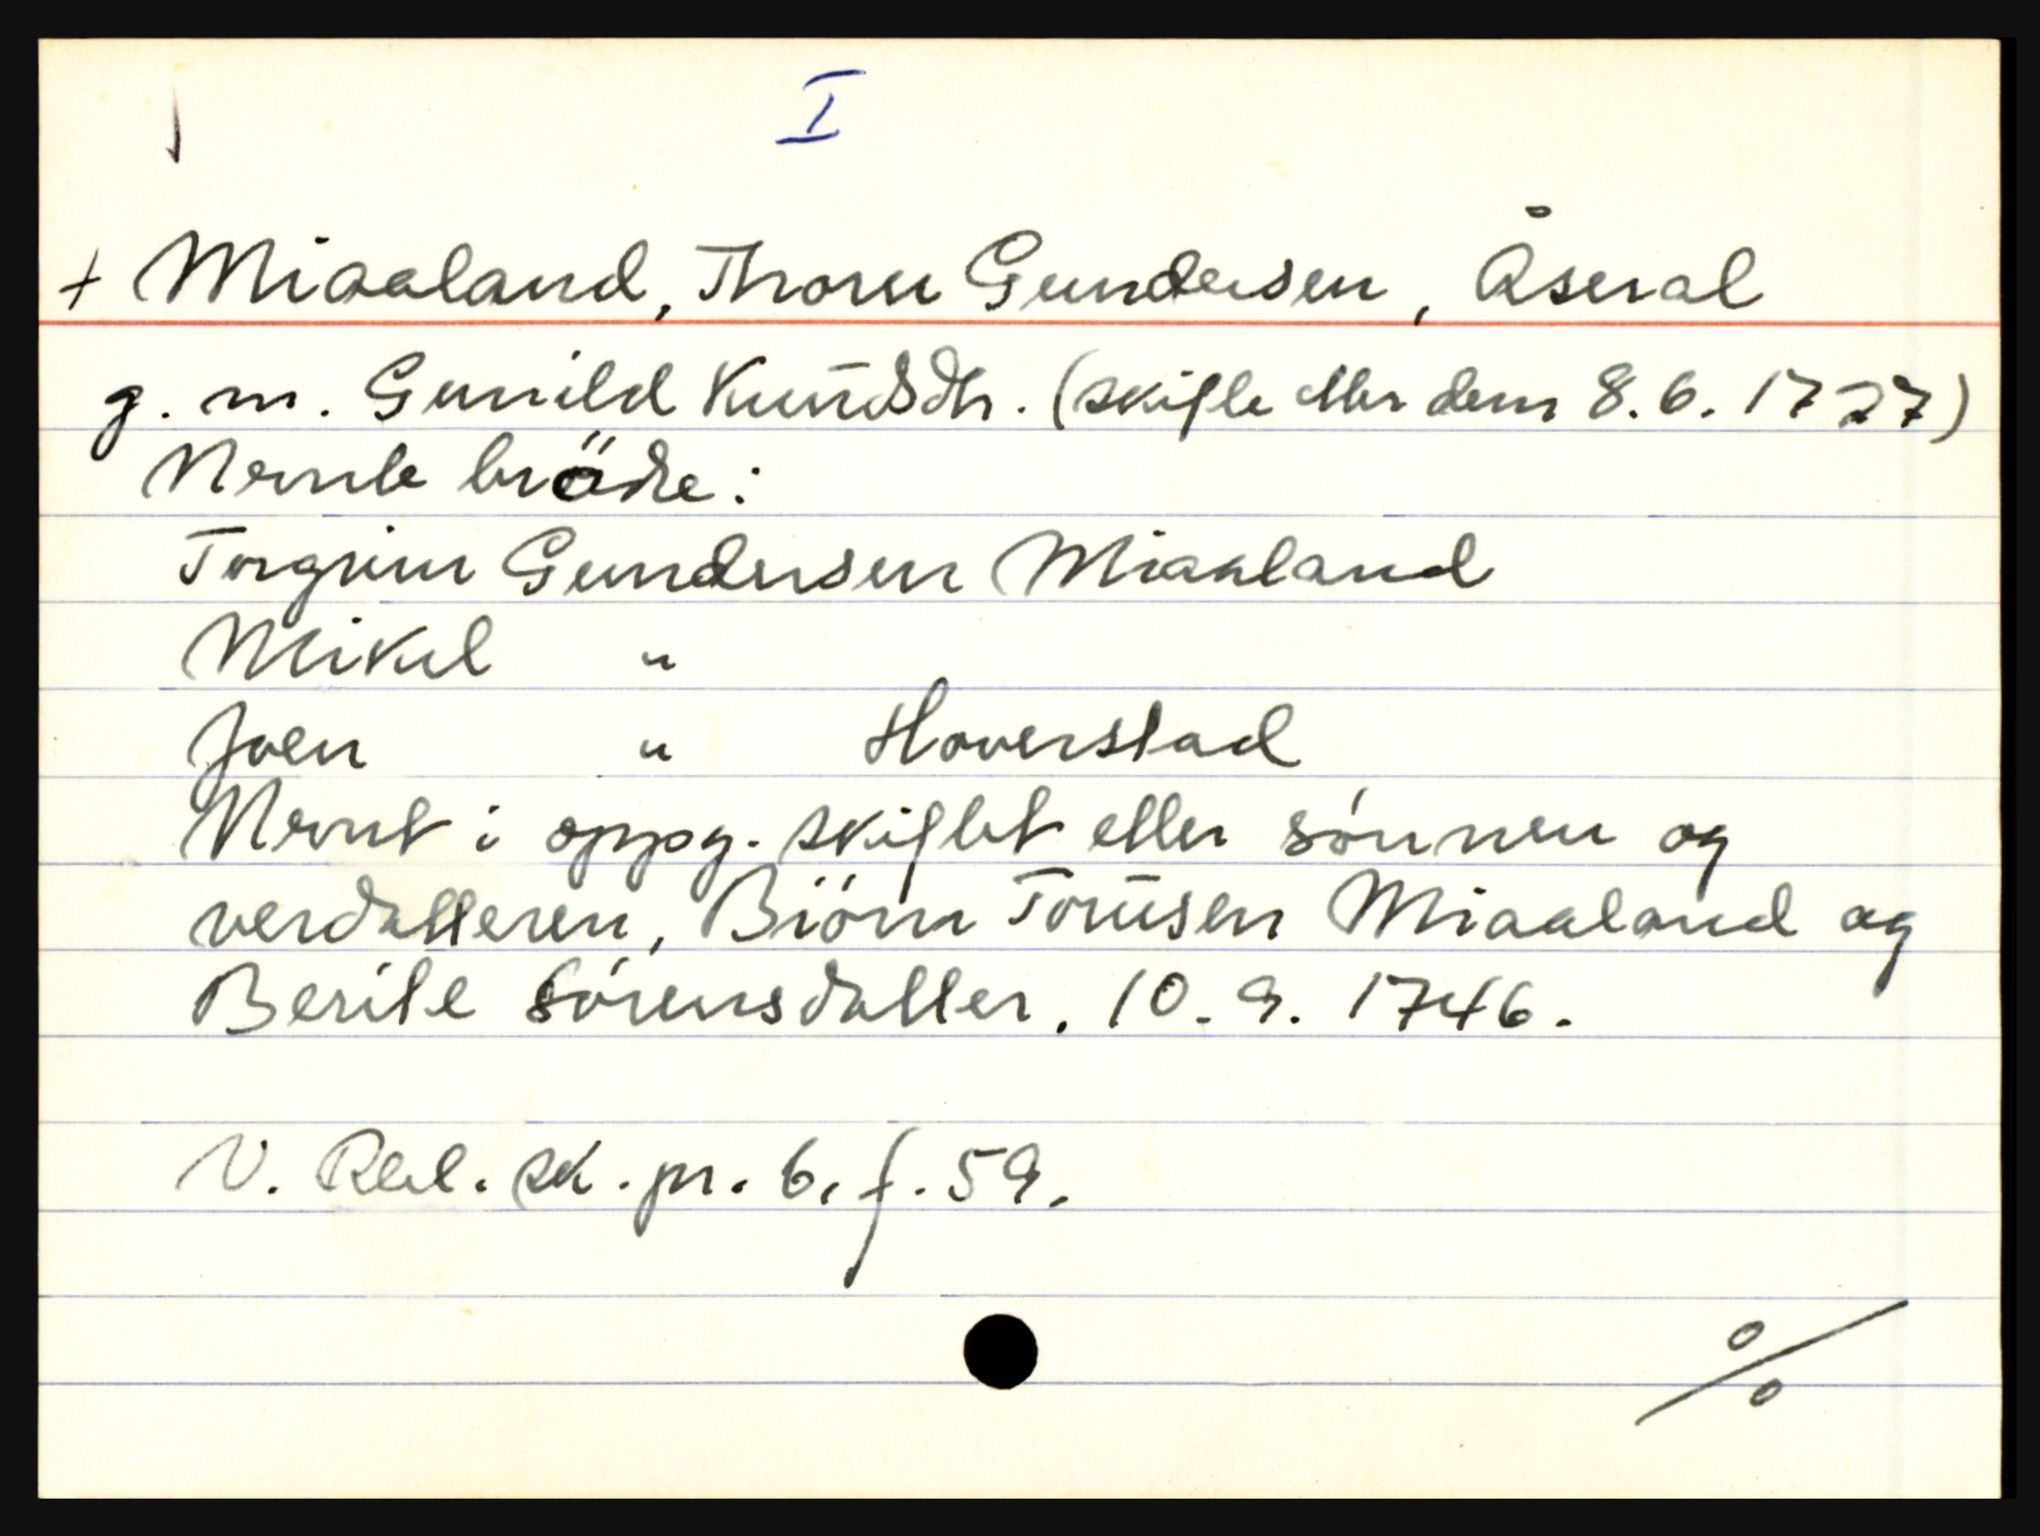 I
+ Miaaland, Thorer Gundersen, Åseral
g. m. Gunild Knudsdtr. (skifte etter dem 8.6. 1727)
Nevnte brödre:
Torgrim Gundersen Miaaland
Mikel "
Joen " Hoverstad
Nevnt i oppg. skiftet etter sónnen og
verdatteren, Biörn Torusen Miaaland og
Berite Sórensdatter. 10. 9. 1746.
V. Råd. sk. pr. 6, f. 59.
%